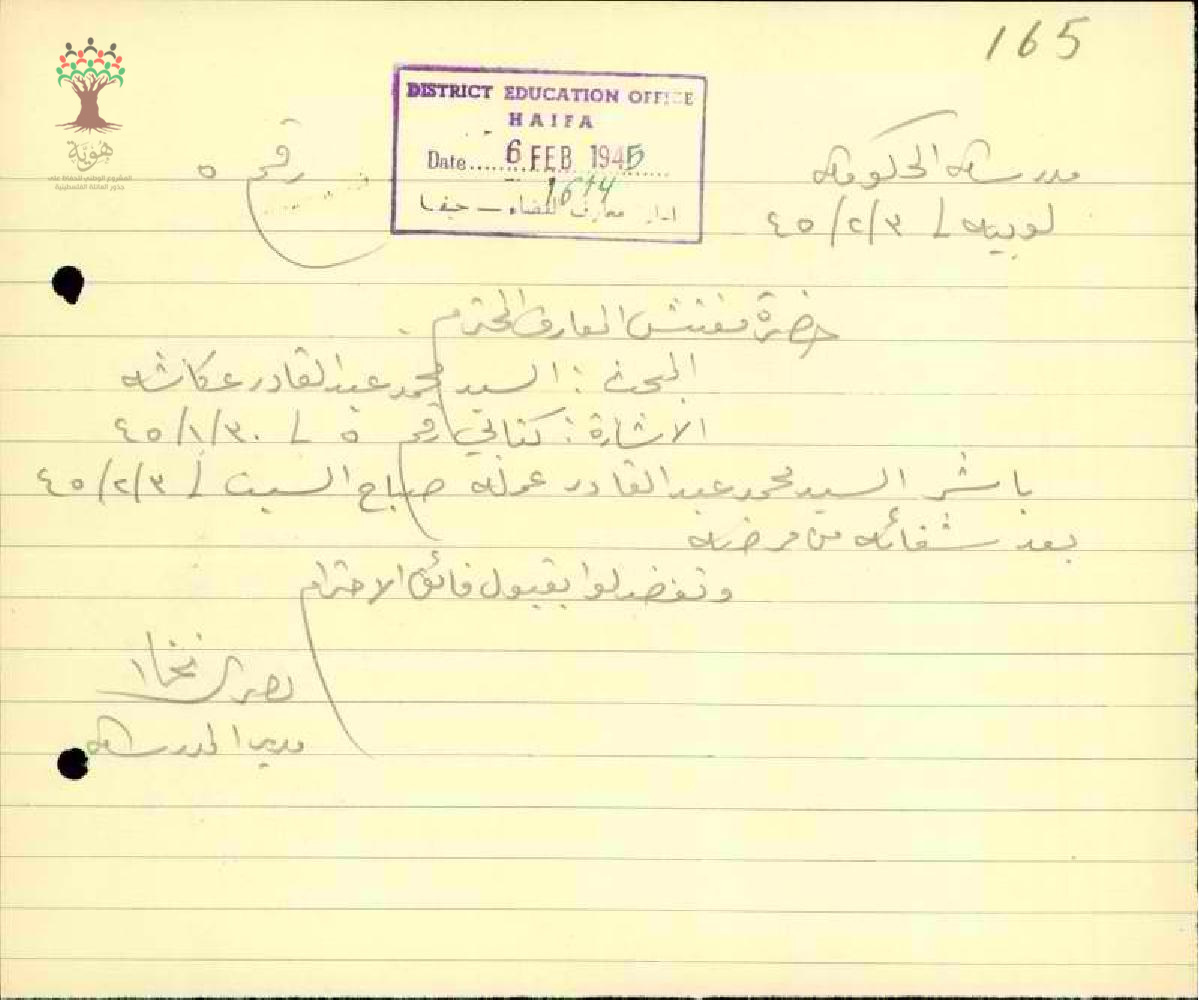 165
DISTRICT EDUCATION OFFICE
HAIFA
Date 6 FEB 1945
1614
ادارة معارف القضاء — حيفا
هوية
المشروع الوطني للحفاظ على
جذور العائلة الفلسطينية
مدرسة الحكومة
رقم ٥
لوبيه / ٣/٢/٤٥
حضرة مفتش المعارف المحترم.
البحث: السيد محمد عبد القادر عكاشه
الاشارة: كتابي رقم ٥ / ٣٠/١/٤٥
باشر السيد محمد عبد القادر عمله صباح السبت / ٣/٢/٤٥
بعد شفائه من مرضه
وتفضلوا بقبول فائق الاحترام
مدير المدرسة